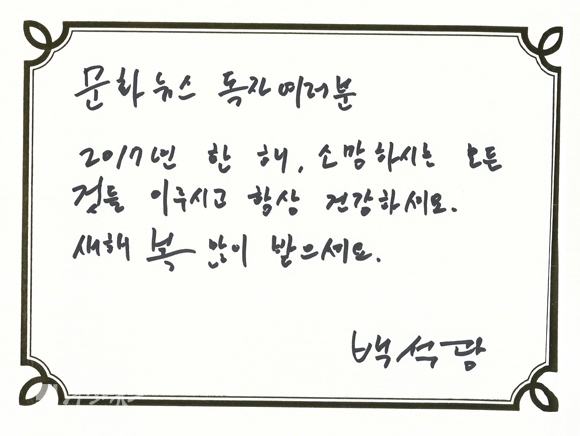 문화뉴스 독자여러분
2017년 한 해, 소망하시는 모든
것들 이루시고 항상 건강하세요.
새해 복 많이 받으세요.
백석광